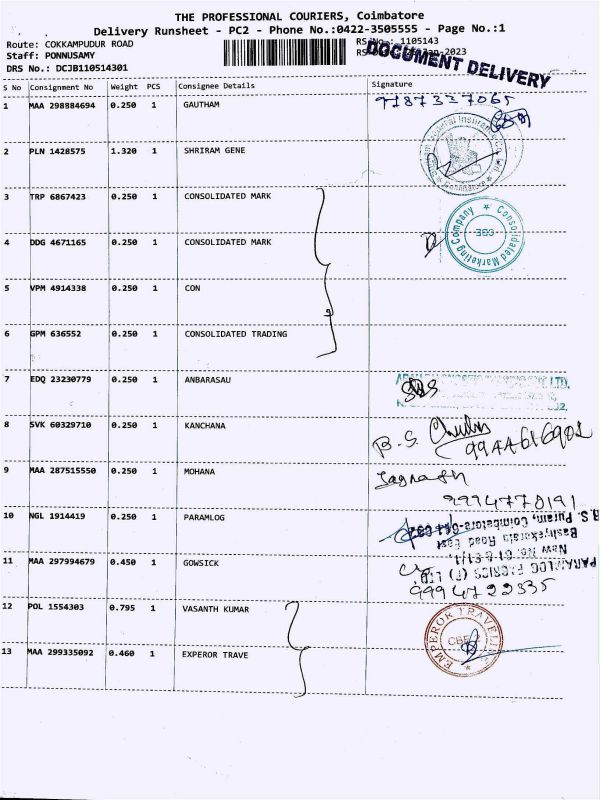 THE PROFESSIONAL COURIERS, Coimbatore
Delivery Runsheet - PC2 - Phone No.:0422-3505555 - Page No.:1
Route: COKKAMPUDUR ROAD
RS No.: 1105143
Staff: PONNUSAMY
DOCUMENT DELIVERY
DRS No.: DCJB110514301
S No Consignment No Weight PCS Consignee Details Signature
1 MAA 298884694 0.250 1 GAUTHAM 9187337065
2 PLN 1428575 1.320 1 SHRIRAM GENE
3 TRP 6867423 0.250 1 CONSOLIDATED MARK
4 DDG 4671165 0.250 1 CONSOLIDATED MARK
Consolidated Marketing Company
CBE
5 VPM 4914338 0.250 1 CON
6 GPM 636552 0.250 1 CONSOLIDATED TRADING
7 EDQ 23230779 0.250 1 ANBARASAU
8 SVK 60329710 0.250 1 KANCHANA
B.S.
9944616901
9 MAA 287515550 0.250 1 MOHANA
Jagnath
9994770191
10 NGL 1914419 0.250 1 PARAMLOG
B.S. Puram, Coimbatore-641 002
Bashyakaralu Road East
New No. 61-B-E1/1,
PARAMLOG FABRICS (P) LTD.
11 MAA 297994679 0.450 1 GOWSICK
9994722335
12 POL 1554303 0.795 1 VASANTH KUMAR
13 MAA 299335092 0.460 1 EXPEROR TRAVE
EMPEROR TRAVEL
CBE